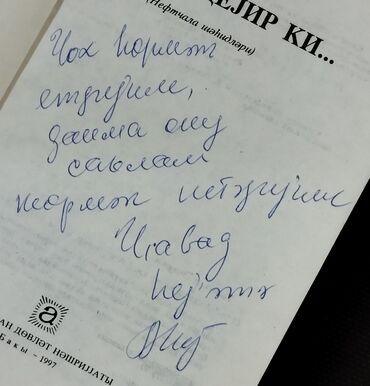 ДЕЈИР КИ...
(Нефтчала шәһидләри)
Чох һөрмәт
етдијим,
даима ону
сағлам
көрмәк истәдијим
Ҹавад
АН ДӨВЛӘТ НӘШРИЈЈАТЫ
Бакы – 1997